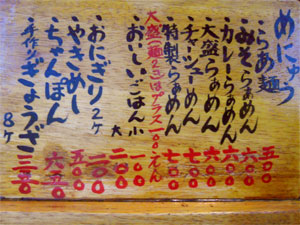 めにゅう
・らぁ麺 五〇〇
・みそらぁめん 六〇〇
・カレーらぁめん 六〇〇
・大盛らぁめん 六〇〇
・チャーシューめん 七〇〇
・特製らぁめん 七〇〇
大盛(麺2こ)はプラス一〇〇えん
・おいしいごはん 小 一〇〇
大 二〇〇
・おにぎり2ヶ 二〇〇
・やきめし 五〇〇
・ちゃんぽん 六五〇
・手作りギョうざ 8ヶ 三五〇